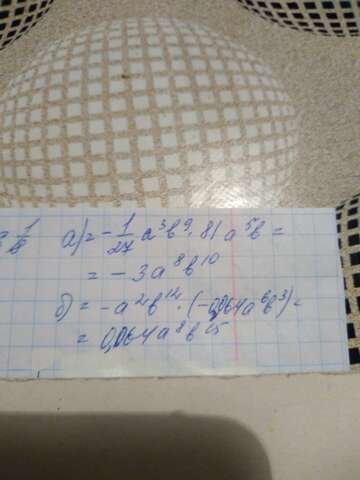 а) = -1/27 a³b⁹ · 81 a⁵b =
= -3a⁸b¹⁰
б) = -a²b¹² · (-0,064a⁶b³) =
= 0,064a⁸b¹⁵